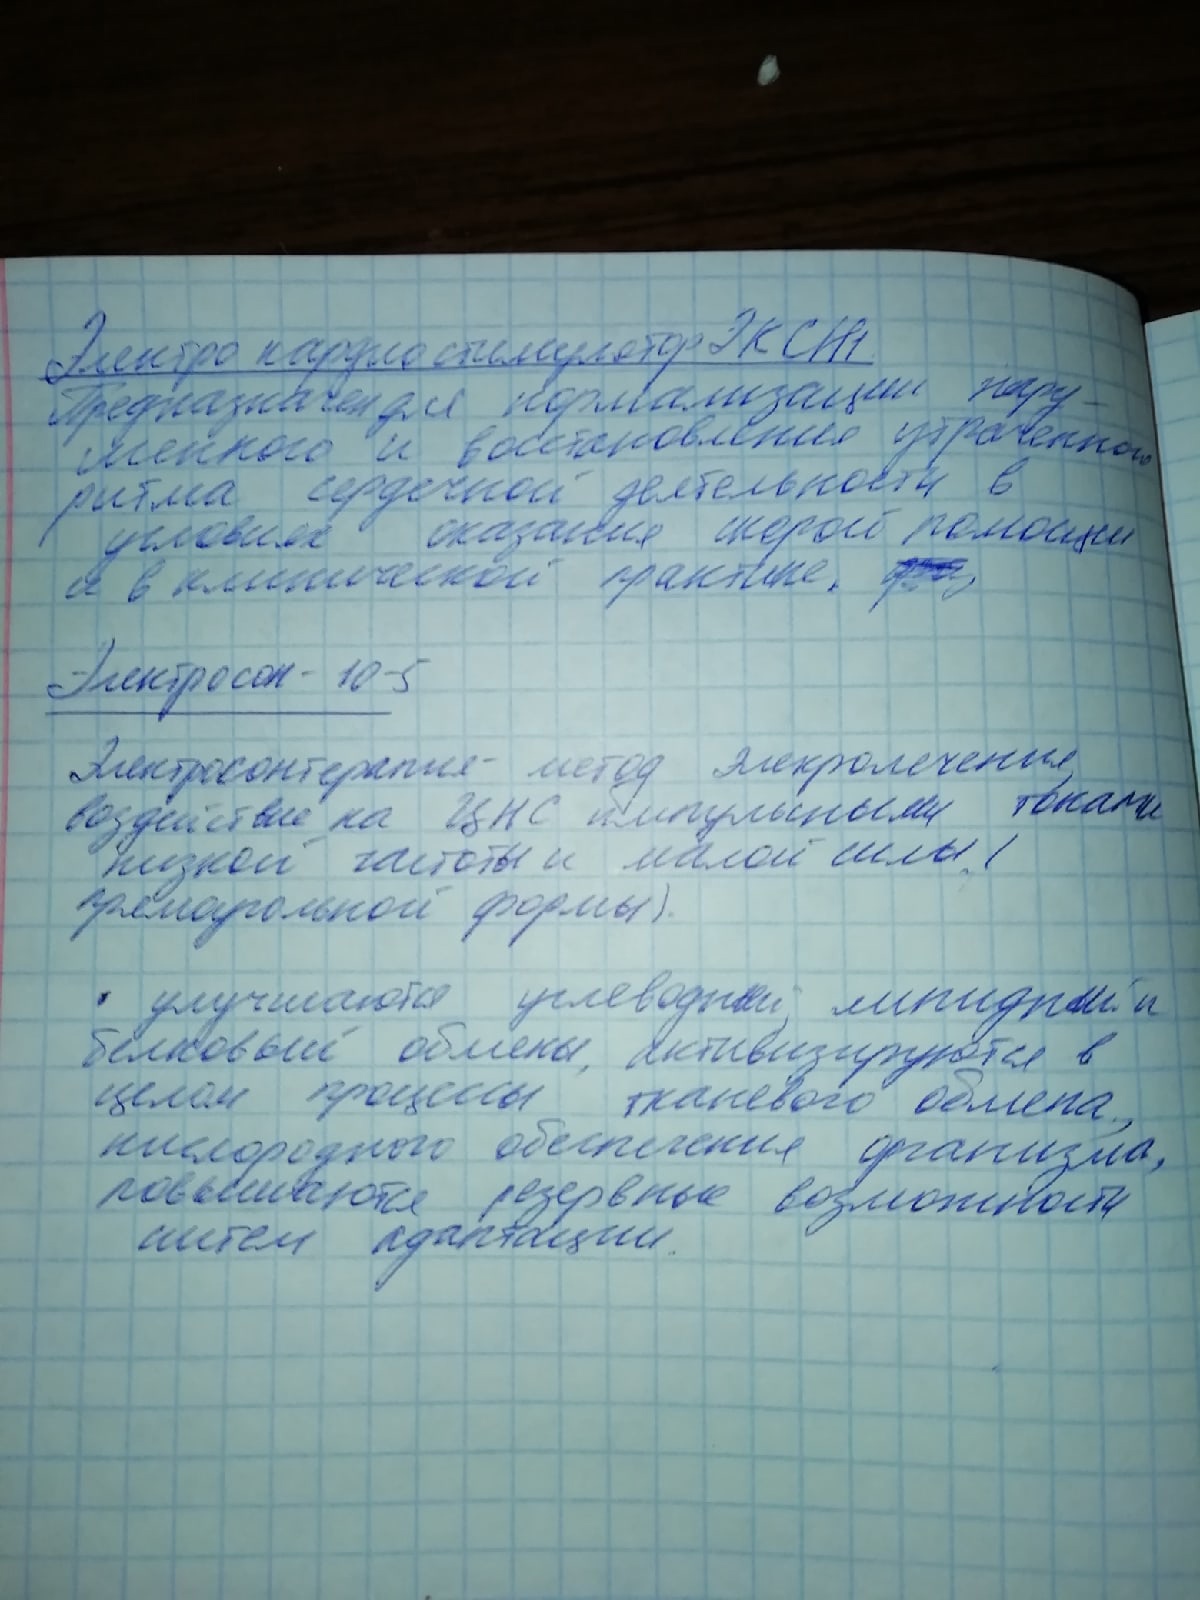 Электро кардиостимулятор ЭКСН1
Предназначен для нормализации нару-
шенного и восстановления утраченного
ритма сердечной деятельности в
условиях оказания скорой помощи
и в клинической практике.
Электросон - 10-5
Электросонтерапия - метод элекролечения,
воздействие на ЦНС импульсными токами
низкой частоты и малой силы (
прямоугольной формы).
• улучшаются углеводный, липидный и
белковый обмены, активизируются в
целом процессы тканевого обмена,
кислородного обеспечения организма,
повышаются резервные возможности
систем адаптации.